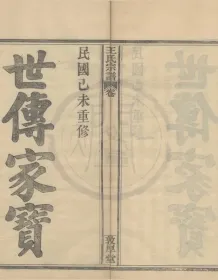 王氏宗譜
卷
敦厚堂
民國己未重修
世傳家寶